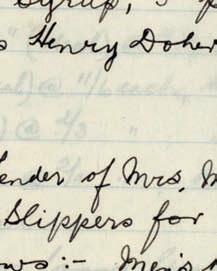 Syrup, 3
Henry Doher
ender of Mrs. M
Slippers for
ows:- Men's